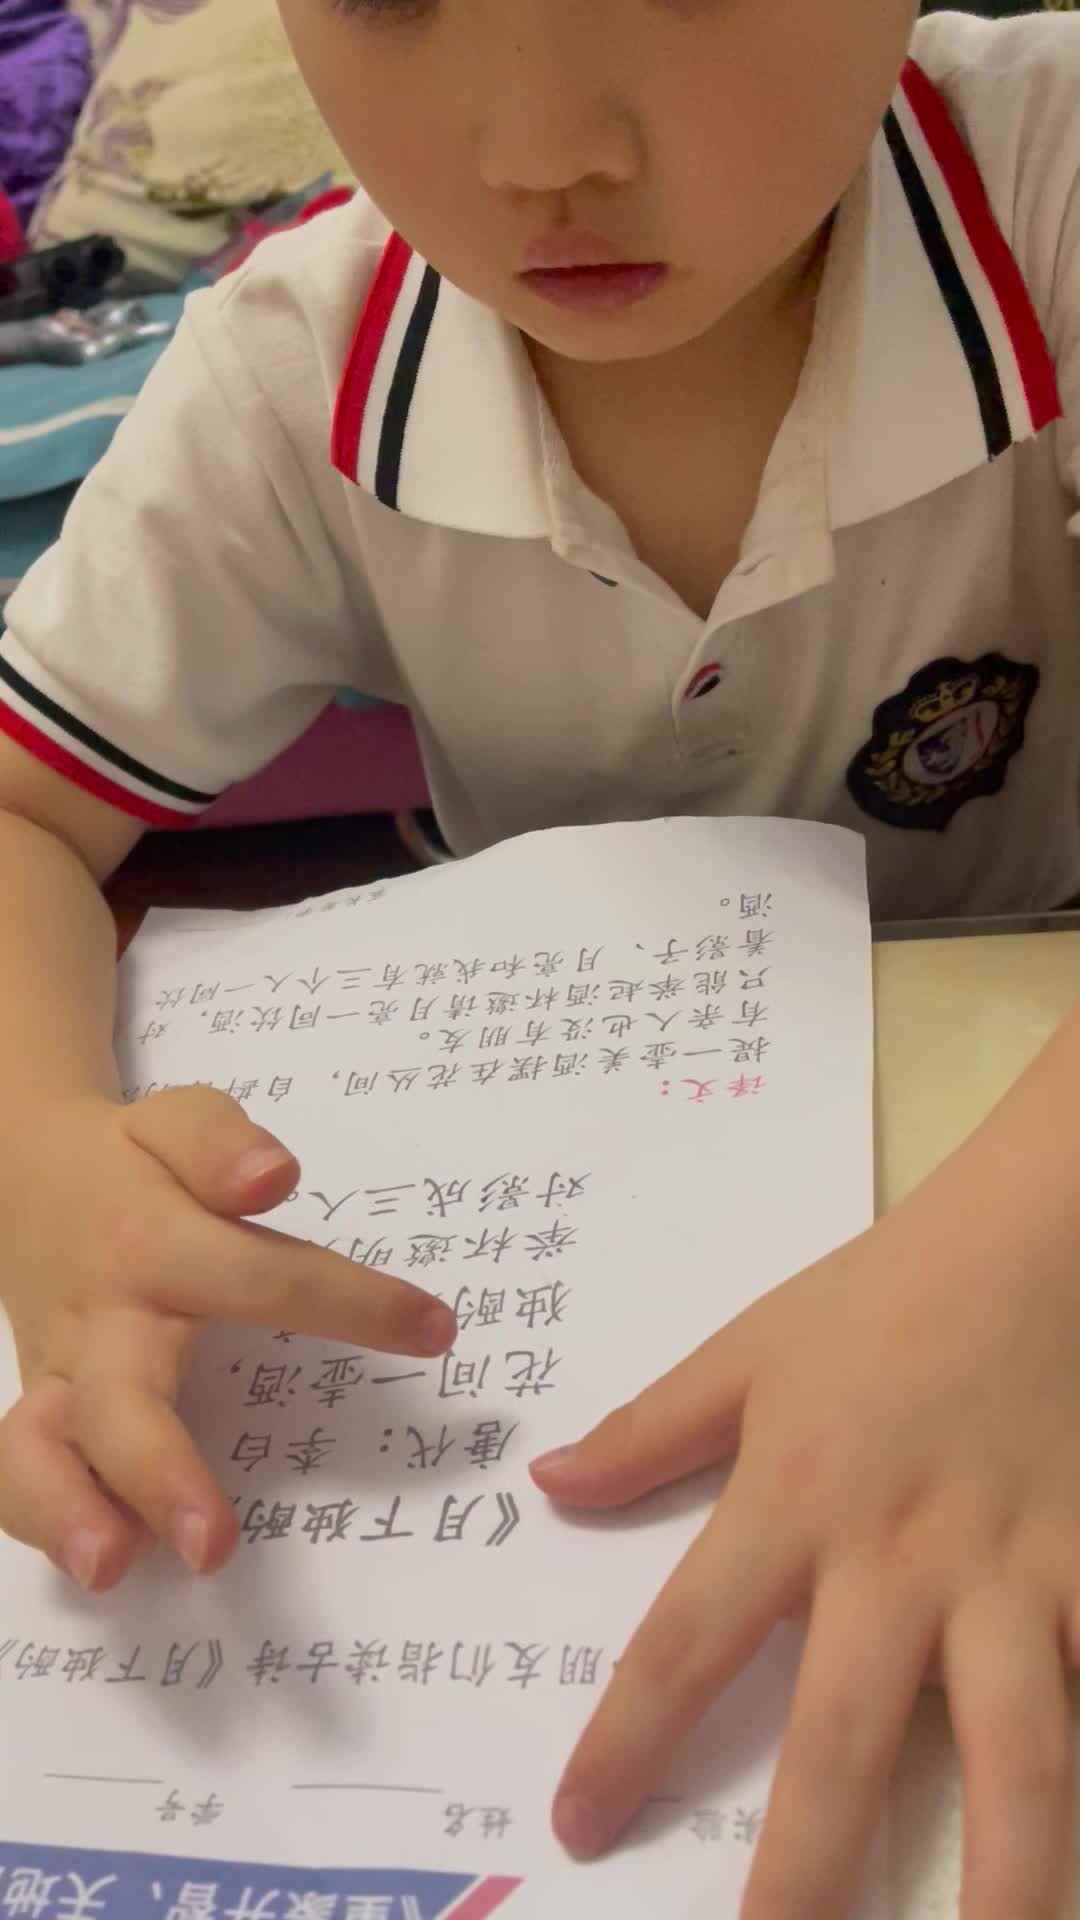 《童蒙开智、天地
实验 姓名 学号
朋友们指读古诗《月下独酌》
《月下独酌
唐代：李白
花间一壶酒，
独酌
举杯邀明
对影成三人。
译文：
提一壶美酒摆在花丛间，自斟
有亲人也没有朋友。
只能举起酒杯邀请月亮一同饮酒，对
着影子、月亮和我就有三个人一同饮
酒。